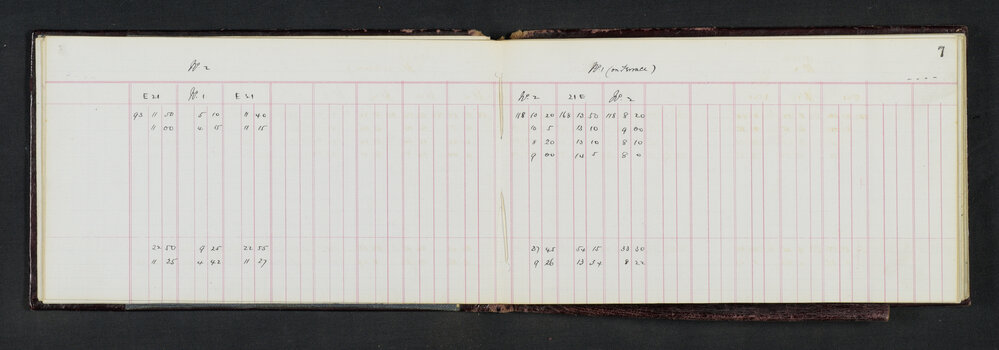 7
№ 2
E 21 № 1 E 21
93 11 50 5 10 11 40
11 00 4 15 11 15
22 50 9 25 22 55
11 25 4 42 11 27
№ 1 (on Terrace)
№ 2 21 E № 2
118 10 20 163 13 50 118 8 20
10 5 13 10 9 00
8 20 13 10 8 10
9 00 14 5 8 0
37 45 54 15 33 30
9 26 13 34 8 22